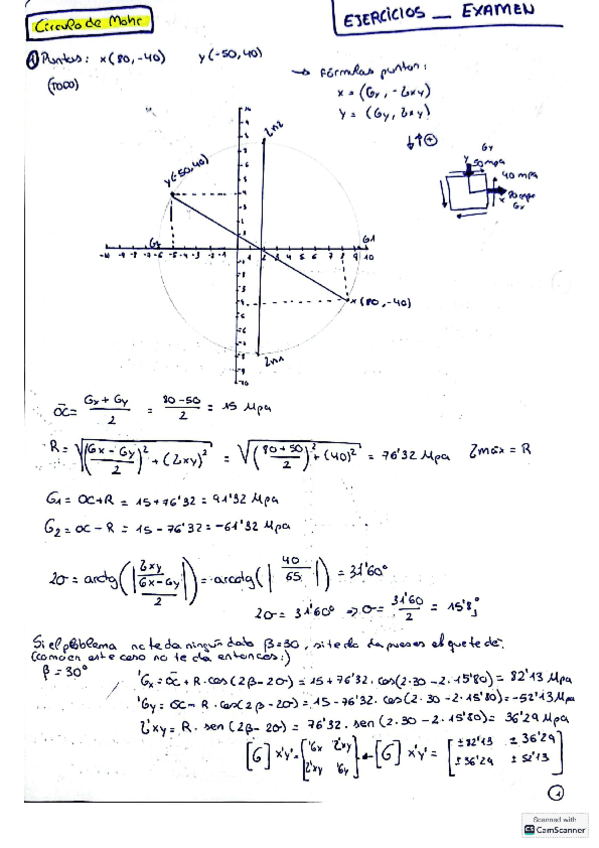 Círculo de Mohr
EJERCICIOS _ EXAMEN
Puntos: x(80,-40) y(-50,40)
(TODO)
→ Fórmulas puntos:
x = (σx, -τxy)
y = (σy, τxy)
↓↑⊕
σy
y 50 mpa
40 mpa
x 80 mpa
σx
y(-50,40)
τm2
10
σ2
σ1
-10 -9 -8 -7 -6 -5 -4 -3 -2 -1
1 2 3 4 5 6 7 8 9 10
x(80,-40)
τm1
-10
oc = σx + σy / 2 = 80-50 / 2 = 15 Mpa
R = √((σx - σy / 2)² + (τxy)²) = √((80+50 / 2)² + (40)²) = 76'32 Mpa τmáx = R
σ1 = oc+R = 15+76'32 = 91'32 Mpa
σ2 = oc - R = 15 - 76'32 = -61'32 Mpa
2σ = arctg(|τxy / (σx - σy / 2)|) = arcotg(|40 / 65|) = 31'60°
2σ = 31'60° ⇒ σ = 31'60 / 2 = 15'8°
Si el problema no te da ningún dato β=30, si te lo da pues es el que te de.
(como en este caso no te da entonces:)
β = 30°
'σx = oc + R · cos(2β - 2σ) = 15 + 76'32 · cos(2·30 - 2·15'80) = 82'13 Mpa
'σy = oc - R · cos(2β - 2σ) = 15 - 76'32 · cos(2·30 - 2·15'80) = -52'13 Mpa
τ'xy = R · sen(2β - 2σ) = 76'32 · sen(2·30 - 2·15'80) = 36'29 Mpa
[σ] x'y' = ['σx τ'xy
τ'xy 'σy] = [σ] x'y' = [±82'13 ±36'29
±36'29 ±52'13]
1
Scanned with
CamScanner